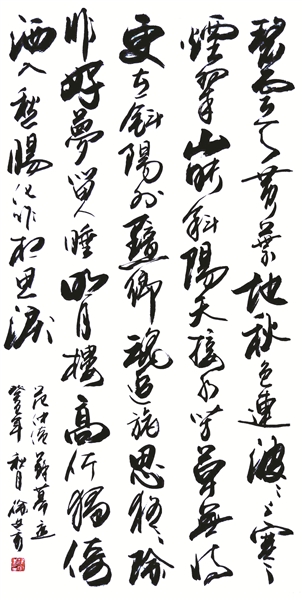 碧云天黄葉地秋色連波〻上寒
煙翠山映斜陽天接水芳草無情
更在斜陽外黯鄉魂追旅思夜〻除
非好夢留人睡明月樓高休獨倚
酒入愁腸化作相思淚
范仲淹蘇幕遮
年秋月